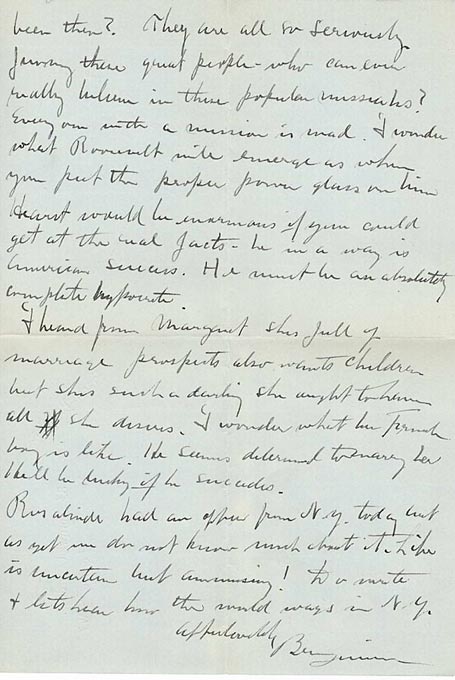 been then? They are all so seriously
funny these great people - who can ever
really believe in these popular messiahs?
Everyone with a mission is mad. I wonder
what Roosevelt will emerge as when
you put the proper power glass on him
Hearst would be enormous if you could
get at the real facts - he in a way is
American success. He must be an absolutely
complete hypocrite.
I heard from Margret shes full of
marriage prospects also wants children
but shes such a darling she ought to have
all she desires. I wonder what her French
boy is like. He seems determined to marry her
He'll be lucky if he succeeds.
Rosalinde had an offer from N.Y. today but
as yet we do not know much about it. Life
is uncertain but amusing! Do write
+ lets hear how the world wags in N.Y.
Affectionately
Benjamin